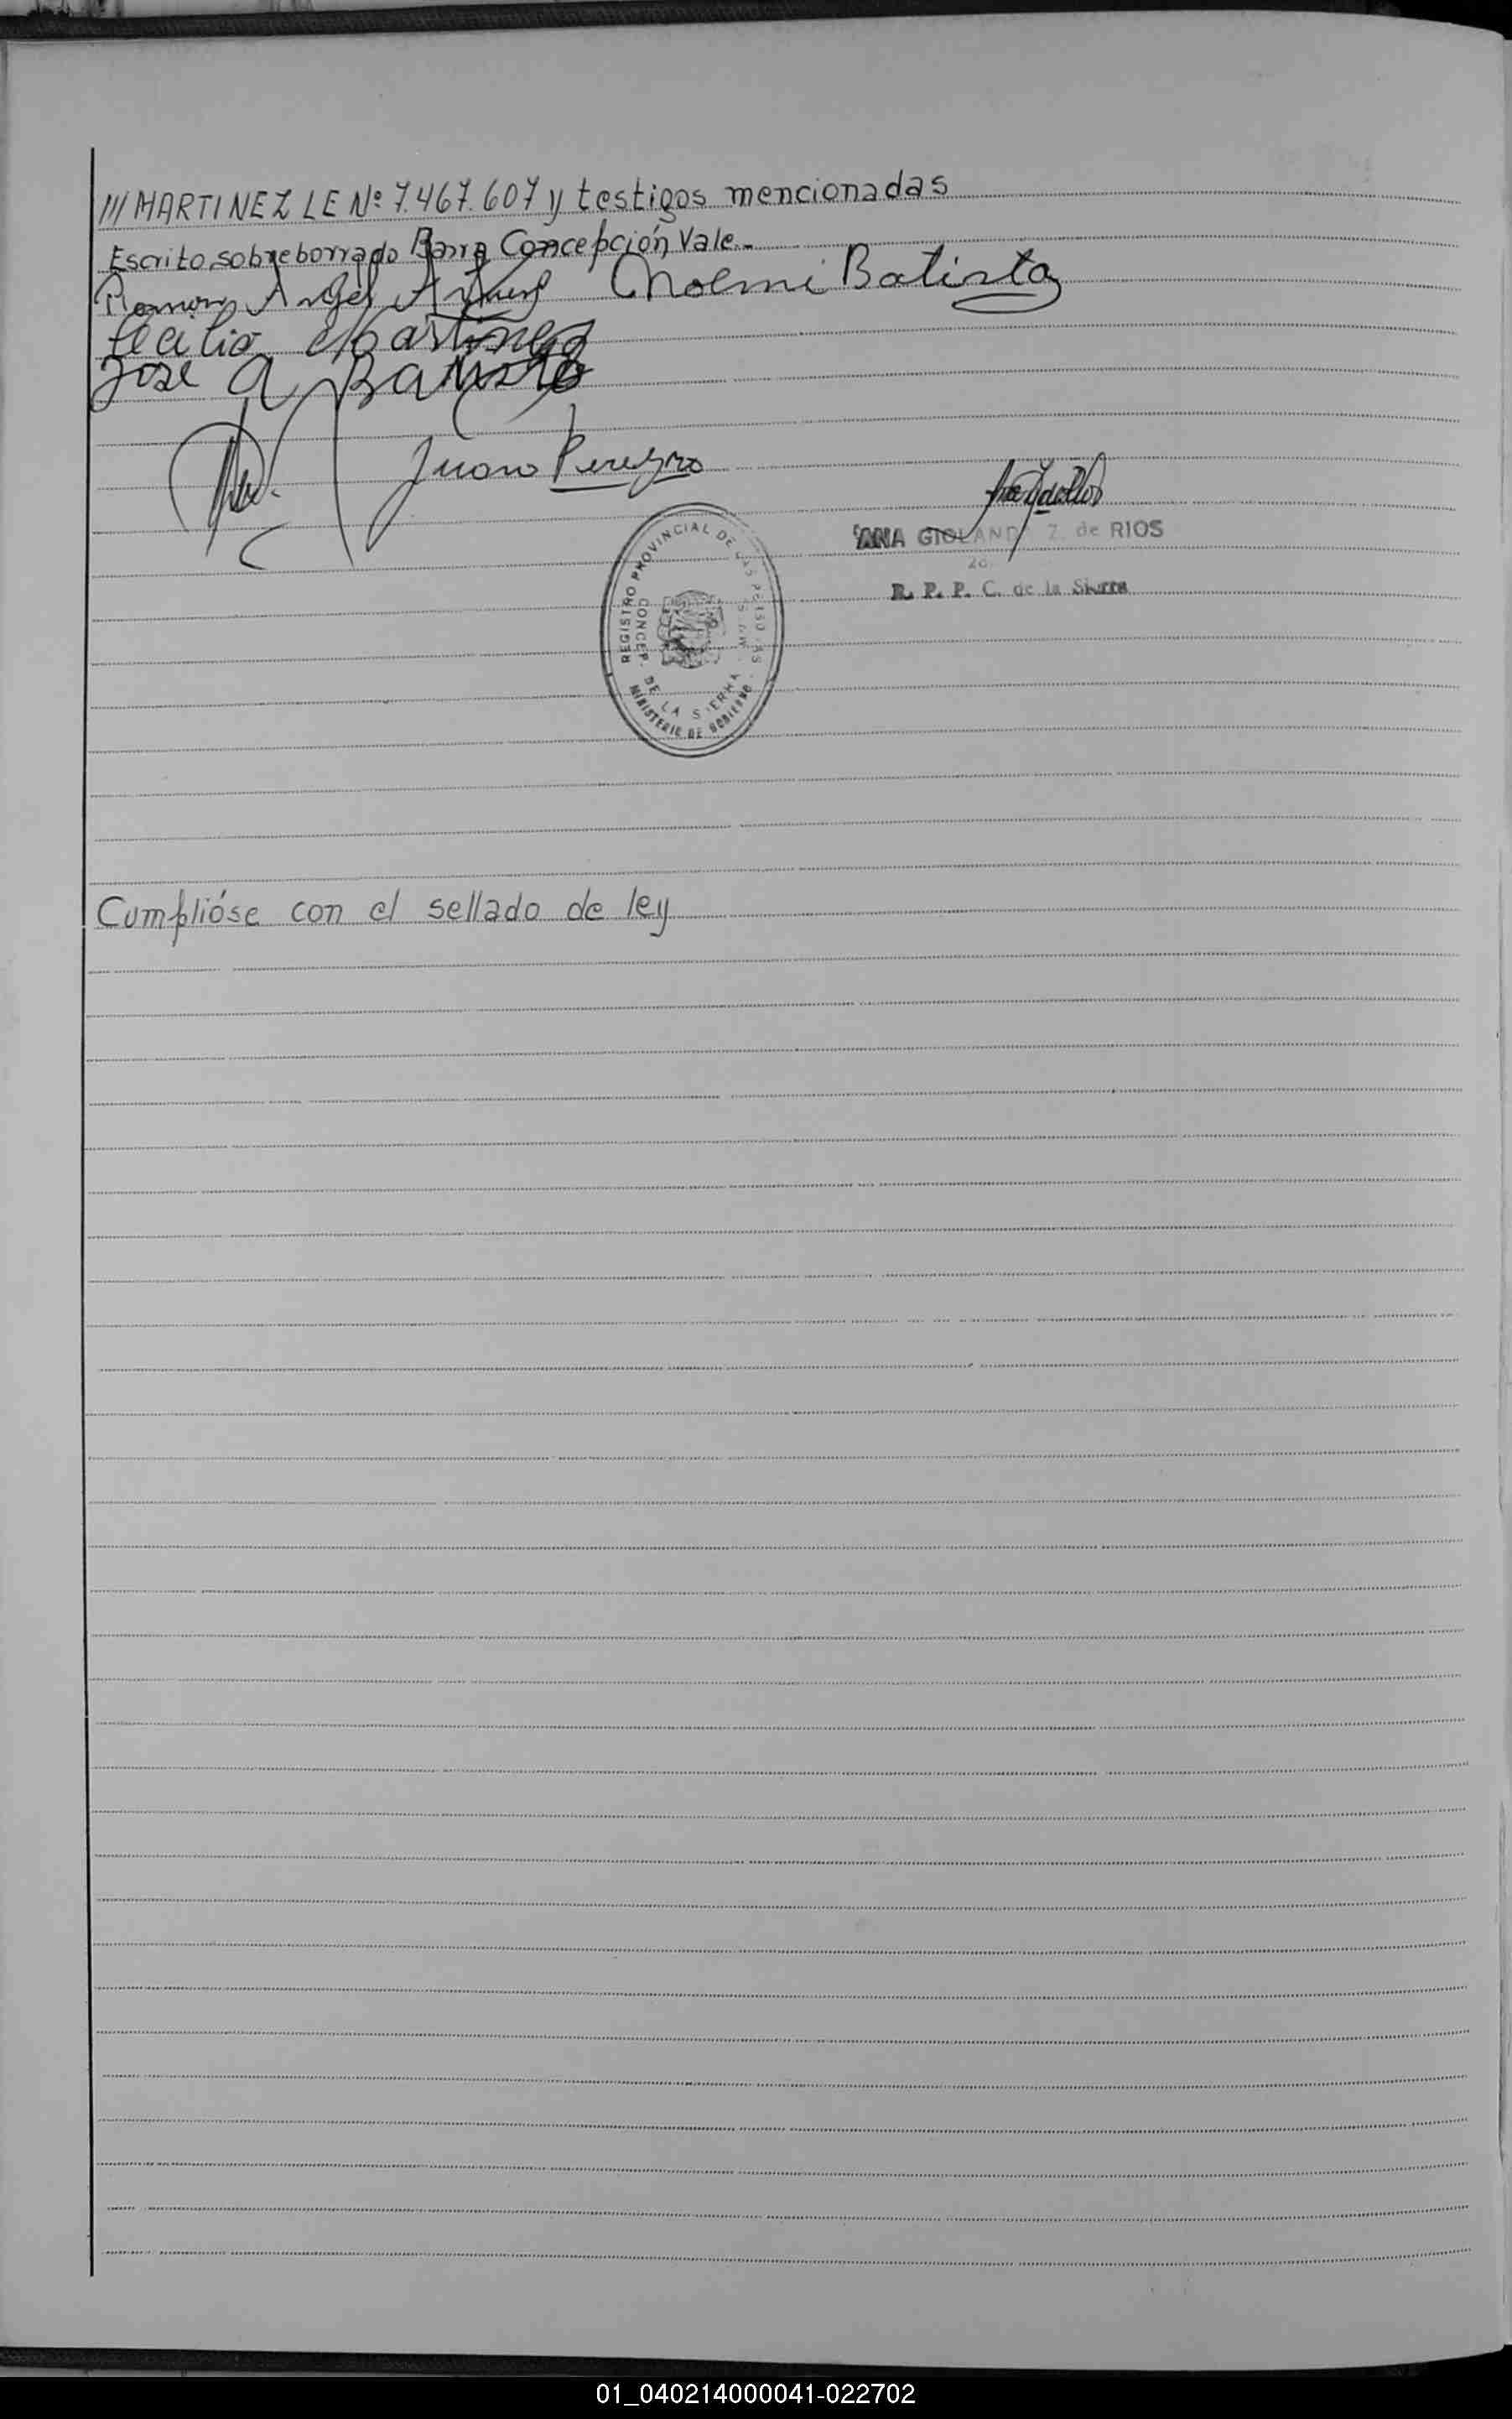 /// MARTINEZ LE Nº 7.467.607 y testigos mencionadas
Escrito sobreborrado Barra Concepción Vale.-
Ramon Angel Noemi Batista
Martinez
Jose A Batista
Juan Pereyra
ANA GIOLAND Z. de RIOS
R. P. P. C. de la Sierra
REGISTRO PROVINCIAL DE LAS PERSONAS
CONCEP. DE LA SIERRA
MINISTERIO DE GOBIERNO
Cumplióse con el sellado de ley
01_040214000041-022702